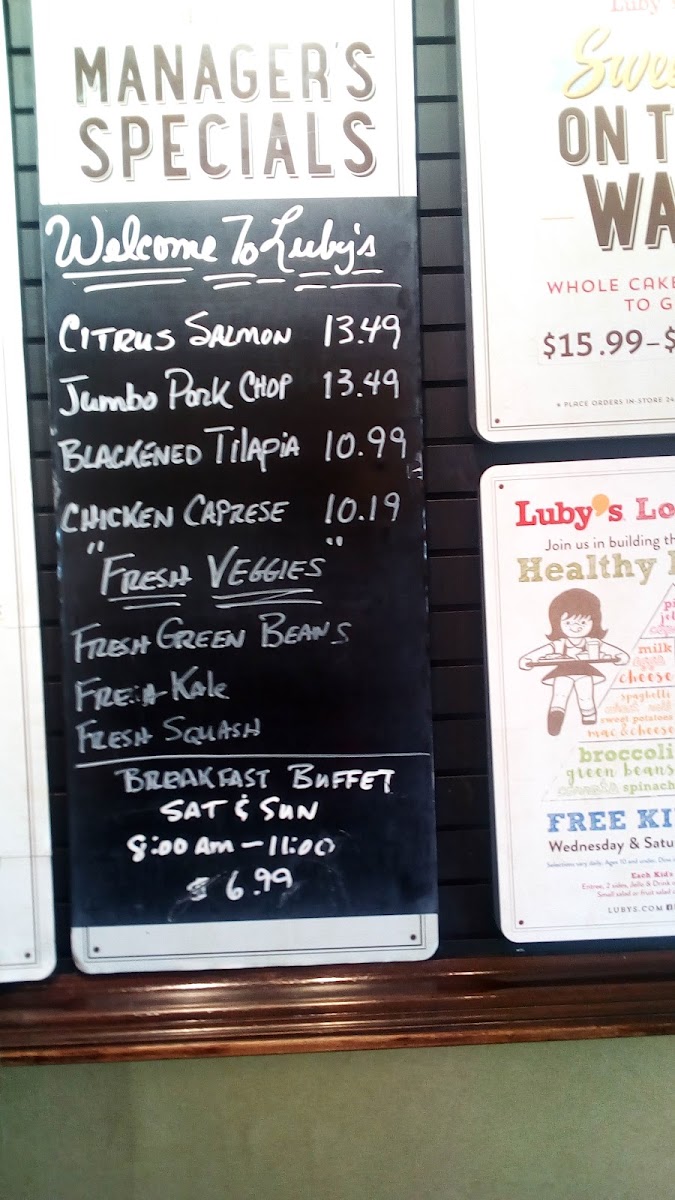 MANAGER'S
SPECIALS
Welcome To Luby's
CITRUS SALMON 13.49
Jumbo Pork CHOP 13.49
BLACKENED TilApiA 10.99
CHICKEN CAPRESE 10.19
"FRESH VEGGIES"
FRESH GREEN BEANS
FRESH Kale
FRESH SQUASH
BREAKFAST BUFFET
SAT & SUN
8:00 AM - 11:00
$ 6.99
Luby's
ON T
WA
WHOLE CAKE
TO G
$15.99-$
PLACE ORDERS IN-STORE 24
Luby's Lo
Join us in building th
Healthy
milk
cheese
spaghetti
sweet potatoes
mac & cheese
broccoli
green beans
spinach
FREE KI
Wednesday & Satu
Selections vary daily. Ages 10 and under. Dine
Each Kid's
Entree, 2 sides, Jello & Drink
Small salad or fruit salad
LUBYS.COM